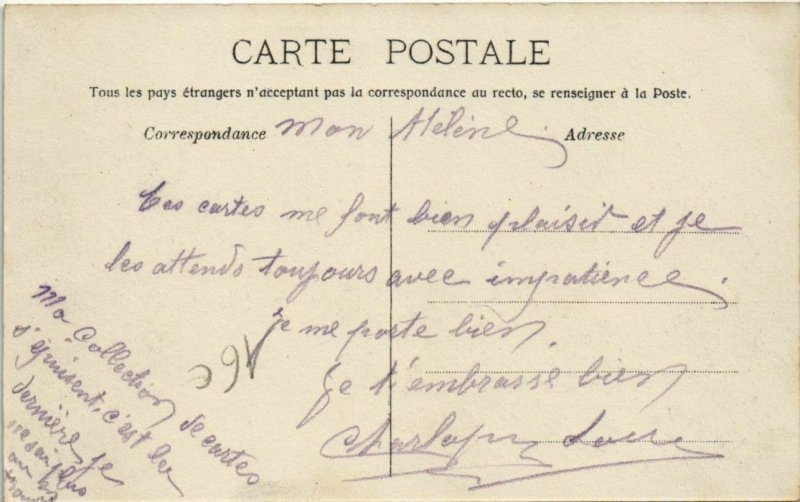 CARTE POSTALE
Tous les pays étrangers n'acceptant pas la correspondance au recto, se renseigner à la Poste.
Correspondance Adresse
Mon Hélène.
Tes cartes me font bien plaisir et je
les attends toujours avec impatience.
je me porte bien.
Je t'embrasse bien
Ma Collection de cartes
s'épuisent, c'est la
dernière je
ne sai plus